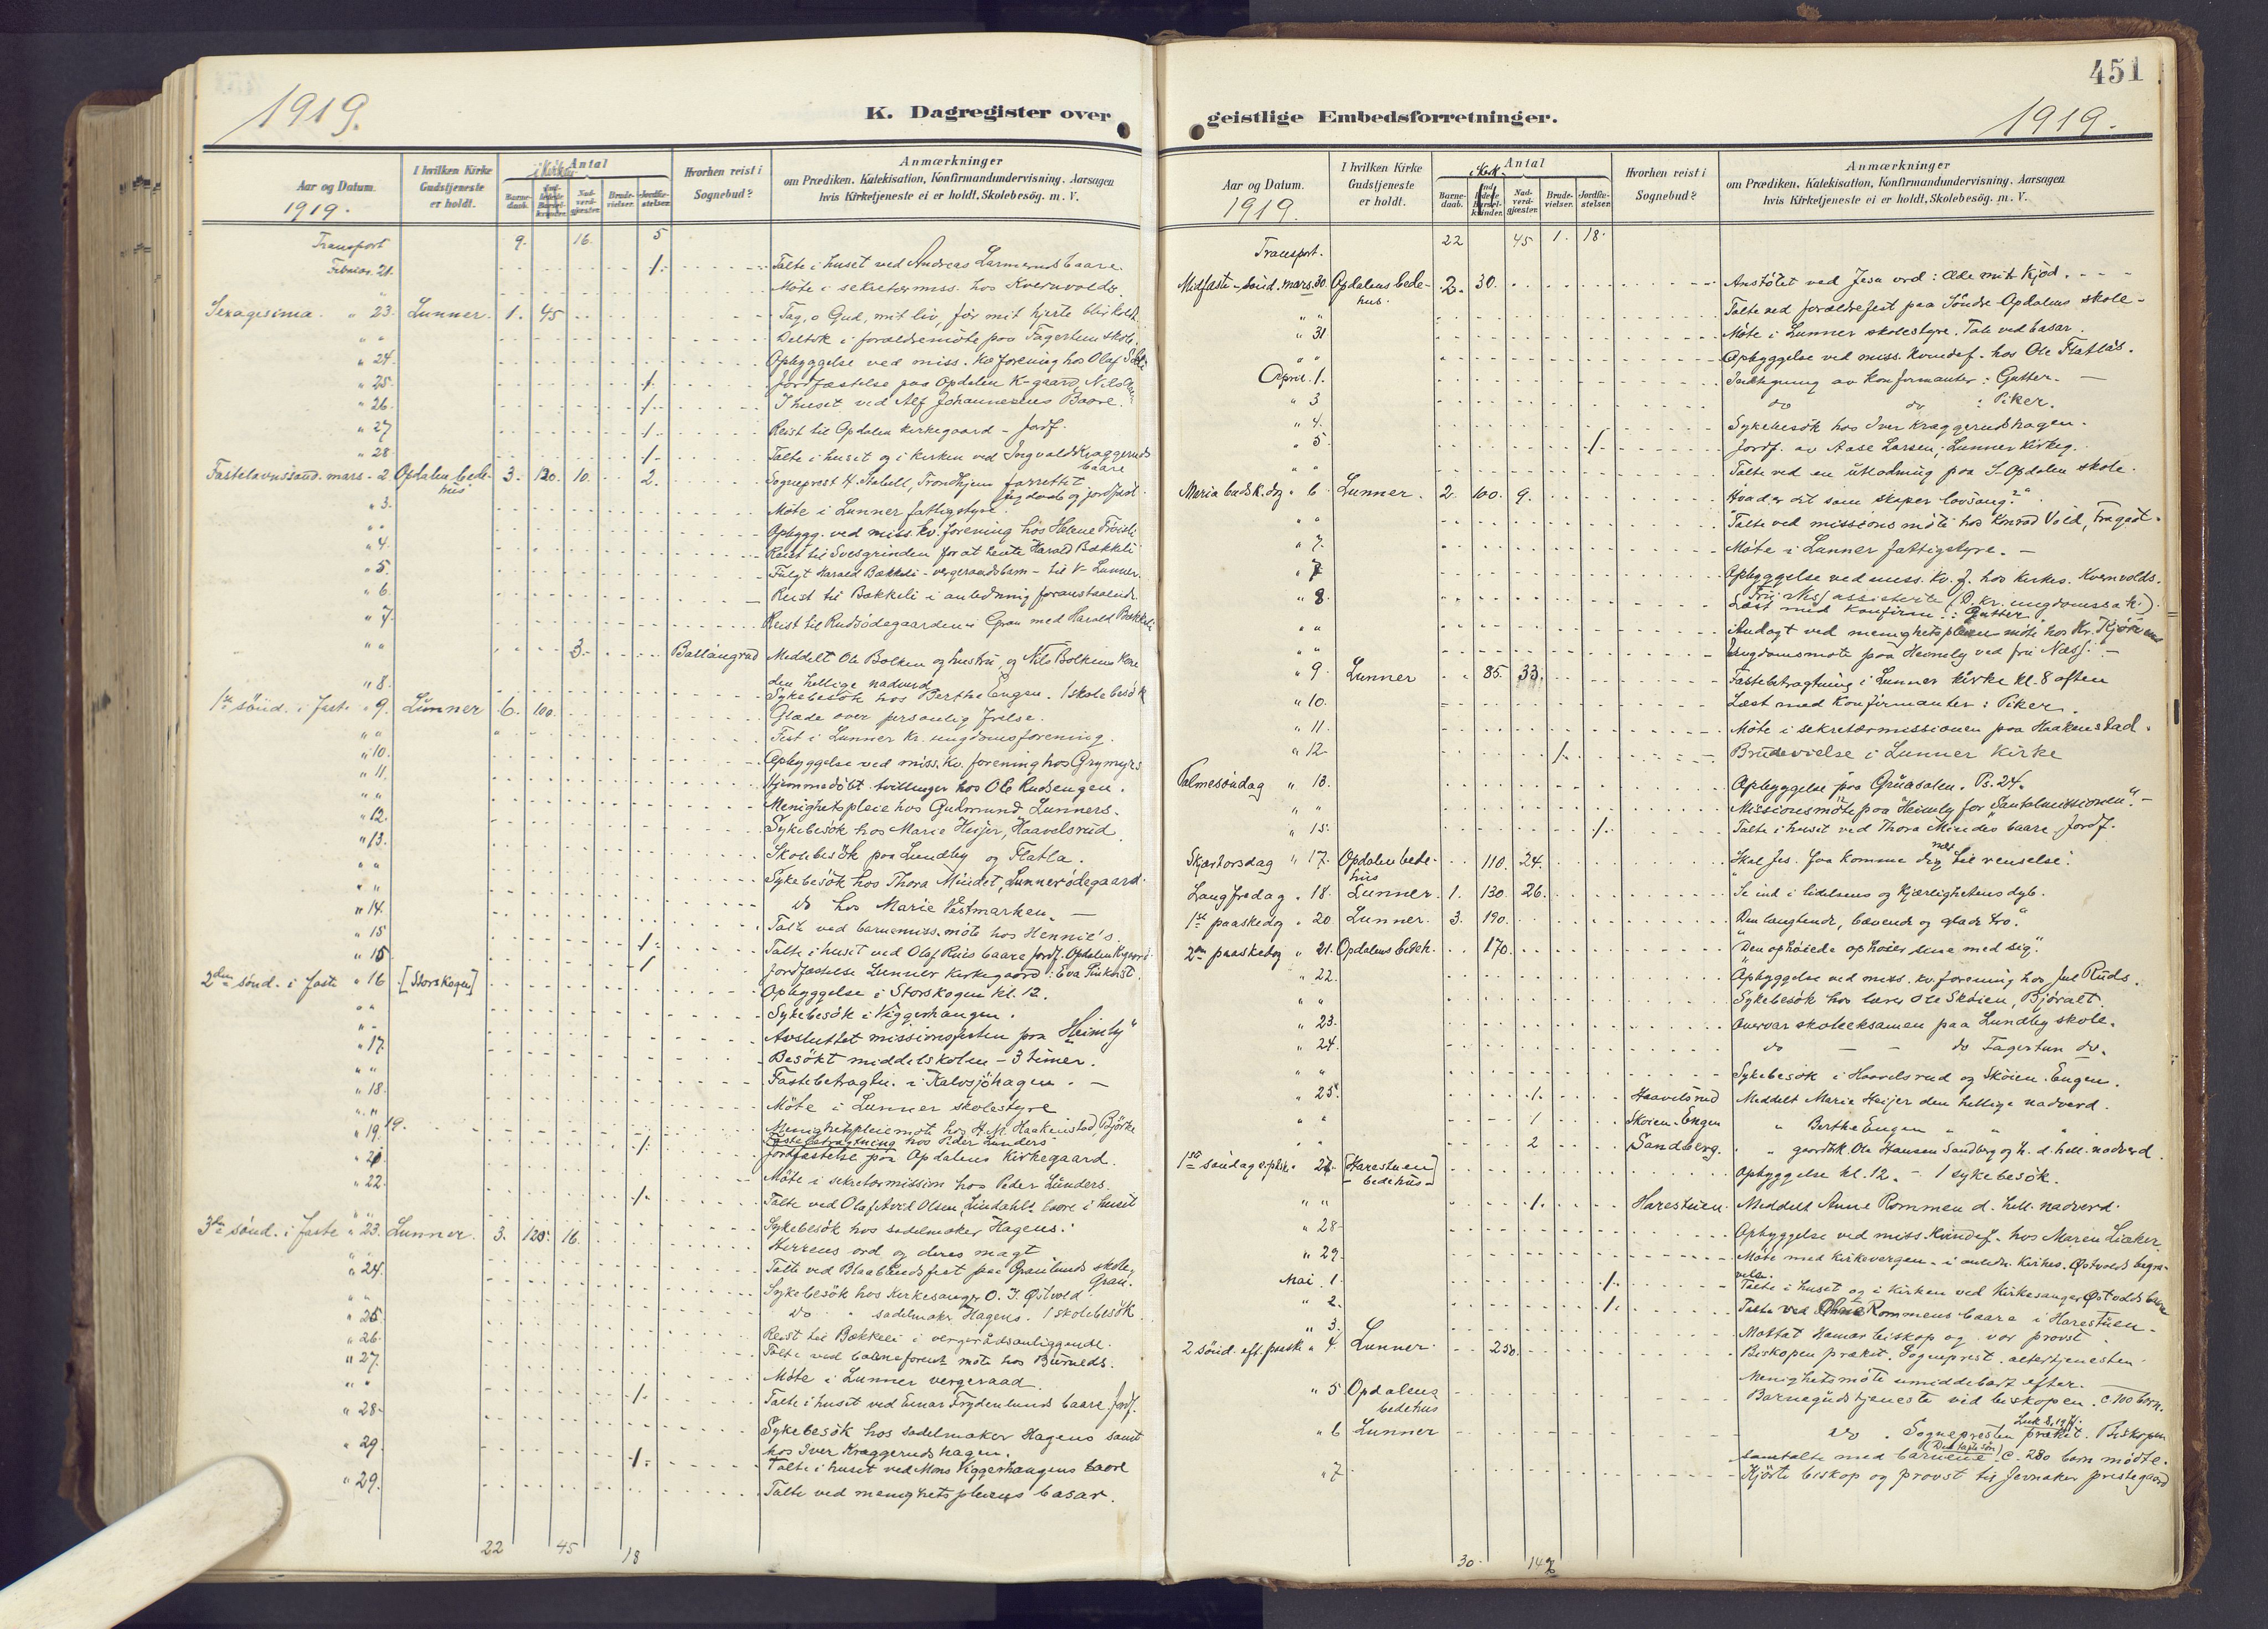 1919.
K. Dagregister over
Aar og Datum.
1919.
I hvilken Kirke Gudstjeneste er holdt.
Antal
Barne-daab.
Nad-verd-gjæster.
Brude-vielser.
Jordfæ-stelser.
Hvorhen reist i Sognebud?
Anmærkninger
om Prædiken, Katekisation, Konfirmandundervisning. Aarsagen
hvis Kirketjeneste ei er holdt, Skolebesøg. m. V.
Transport 9. 16. 5
Februar. 21. 1. Talte i huset ved Andreas Larmeruds baare.
" Møte i sekretærmiss. hos Kvernvolds.
Sexagesima. " 23. Lunner. 1. 45 Tag, o Gud, mit liv, før mit hjerte blir koldt.
" " Deltok i forældremøte paa Fagertun skole.
" 24. Opbyggelse ved miss. kv. forening hos Olaf
" 25. 1. Jordfæstelse paa Opdalen K-gaard, Nils
" 26. 1. I huset ved Alf Johannesens Baare.
" 27 1. Reist til Opdalen kirkegaard - Jordf.
" 28. 1. Talte i huset og i kirken ved Ingvald Kraggeruds baare
Fastelavnssønd. mars. 2 Opdalen bede-hus 3. 120. 10. 2. Sogneprest H. Stabell, Trondhjem forrettet
og døpte og jordfæst.
" 3. Møte i Lunner fattigstyre.
" " Opbygg. ved miss. kv. forening hos Helene Frøisli
" 4. Reist til Svesgrinden for at hente Harald Bækkeli
" 5. Fulgt Harald Bækkeli - vergeraadsbarn - til V- Lunner.
" 6. Reist til Bækkeli i anledning foranstaaende.
" 7. Reist til Rudsødegaarden i Gran med Harald Bækkeli
" " 3. Ballangrud Meddelt Ole Bolken og hustru, og Nils Bolkens kone
den hellige nadverd
" 8. Sykebesøk hos Berthe Engen. 1 skolebesøk
1ste sønd. i faste " 9. Lunner 6. 100. Glæde over personlig frelse.
" " Fest i Lunner kr. ungdomsforening.
" 10. Opbyggelse ved miss. kv. forening hos Grymyrs
" 11. Hjemmedøbt tvillinger hos Ole Rudsengen.
" " Menighetspleie hos Gudmund Lunners.
" 12. Sykebesøk hos Marie Heijer, Haavelsrud
" 13. Skolebesøk paa Lundby og Flatla.
" " Sykebesøk hos Thora Mindet, Lunnersødegaard.
" " do hos Marie Vestmarken. —
" 14. Talt ved barnemiss. møte hos Hennie's.
" 15 1. Talte i huset ved Olaf Ruds baare Jordf. Opdalen
" 15 1 Jordfæstelse Lunner kirkegaard: Eva
2den sønd. i faste " 16 [Storskogen] Opbyggelse i Storskogen kl. 12.
" " Sykebesøk i Viggerhaugen.
" " Avsluttet missionsfesten paa "Heimly"
" 17. Besøkt middelskolen - 3 timer.
" " Fastebetragtn. i Kalvsjøhagen. —
" 18. Møte i Lunner skolestyre
" " Menighetspleiemøte hos H. M. Haakenstad Bjørke
" 19. 19. Fastebetragtning hos Peder Lunders
" 21. 1. Jordfæstelse paa Opdalens Kirkegaard.
" 22. Møte i sekretærmission hos Peder Lunders.
" " 1. Talte ved Olaf Arvid Olsen, Lindahls baare i huset
3die sønd. i faste " 23. Lunner. 3. 120. 16. Sykebesøk hos sadelmaker Hagens.
" " Herrens ord og deres magt
" 24. Talte ved Blaabaandsfest paa Granlunds skole, Gran.
" " Sykebesøk hos Kirkesanger O. J. Østvold
" 25. do " sadelmaker Hagens. 1 skolebesøk
" 26. Reist til Bækkeli i vergerådsanliggende.
" 27. Talte ved barneforent møte hos
" " Møte i Lunner vergeraad.
" 28. 1. Talte i huset ved Einar Frydenlunds baare Jordf.
Sykebesøk hos Sadelmaker Hagens samt
" 29. hos Iver Kraggerudshagen.
1. Talte i huset ved Mons Viggerhaugens baare
" 29. Talte ved menighetspleiens basar.
22 45 18
451
geistlige Embedsforretninger.
1919.
Aar og Datum.
1919.
I hvilken Kirke Gudstjeneste er holdt.
Antal
Barne-daab.
Nad-verd-gjæster.
Brude-vielser.
Jordfæ-stelser.
Hvorhen reist i Sognebud?
Anmærkninger
om Prædiken, Katekisation, Konfirmandundervisning. Aarsagen
hvis Kirketjeneste ei er holdt, Skolebesøg. m. V.
Transport. 22 45 1. 18.
Midfaste-sønd. mars. 30. Opdalens bede-hus. 2. 30. Anstøtet ved Jesu ord: Æte mit kjød.
" " Talte ved forældrefest paa Søndre Opdalens skole -
" 31 Møte i Lunner skolestyre. Tale ved basar.
" " Opbyggelse ved miss. kvindef. hos Ole Flatlas.
April. 1. Indtegning av konfirmanter: Gutter. —
" 3 do do : Piker.
" 4. Sykebesøk hos Iver Kraggerudshagen.
" 5 1. Jordf. av Aase Larsen, Lunner kirkeg.
" " Talte ved en utlodning paa S. Opdalen skole.
Maria budsk. dag " 6 Lunner. 2. 100. 9. Hvad er det som skaper lovsang?
" " Talte ved missionsmøte hos Konrad Vold,
" 7. Møte i Lunner fattigstyre. —
" 7 Opbyggelse ved miss. kv. f. hos kirkes. Kvernvolds.
Fru Næss assisterte (D. kr. ungdomssak).
" 8 Læst med konfirm.: Gutter.
" " Andagt ved menighetspleiemøte hos Kr.
" " Ungdomsmøte paa Heimly ved fru Næss. —
" 9 Lunner 85. 33. Fastebetragtning i Lunner kirke kl. 8 aften
" 10. Læst med konfirmanter: Piker.
" 11. Møte i sekretærmissionen paa Haakenstad.
" 12. 1. Brudevielse i Lunner Kirke
Palmesøndag " 13. Opbyggelse paa Gruasalen. Ps. 24.
" " Missionsmøte paa "Heimly" for "Santalmissionen". —
" 15. 1. Talte i huset ved Thora Mindes baare. Jordf.
Skjærtorsdag " 17. Opdalen bede-hus 110. 24. Skal Jes. faa komme dig nær til renselse.
Langfredag " 18. Lunner. 1. 130. 26. Se ind i lidelsens og kjærlighetens dyb.
1ste paaskedag " 20 Lunner. 3. 190. Den længtende, bævende og glade tro.
2den paaskedag " 21. Opdalens bedeh. 170. "Den ophøiede ophøier sine med sig".
" 22. Opbyggelse ved miss. kv. forening hos Jul Ruds.
" " Sykebesøk hos lærer Ole Skøien, Bjøralt
" 23. Overvar skoleeksamen paa Lundby skole.
" 24. do — — do Fagertun do.
" " Sykebesøk i Haavelsrud og Skøien-Engen.
" 25. 1. Haavelsrud Meddelt Marie Heijer den hellige nadverd.
" " 1 Skøien-Engen " Berthe Engen " " "
" " 2 Sandberg. " gaardbr. Ole Hansen Sandberg og h. d. hell. nadverd.
1ste søndag e. paaske " 27. [Harestuen bedehus] Opbyggelse kl. 12. - 1 sykebesøk.
" " 1. Harestuen. Meddelt Anne Rommen d. hell. nadverd.
" 28 Opbyggelse ved miss. Kvindef. hos Maren Liaker.
" 29. Møte med kirkevergen - i anledn. kirkes. Østvolds begra-velse.
Mai. 1. 1. Talte i huset og i kirken ved Kirkesanger Østvolds baare
" 2. 1. Talte ved Anne Rommens baare i Harestuen -
" 3. Mottat Hamar biskop og vor provst.
2 sønd. eft. paaske " 4. Lunner. 250. Biskopen præket. Sogneprest altertjenesten.
Menighetsmøte umiddelbart efter. —
" 5 Opdalens bedehus Barnegudstjeneste ved biskopen. c. 100 barn.
" 6 Lunner do. Sognepresten præket. Biskopen
samtalte med barnene. C. 280 barn mødte.
(Den tapte søn)
" 7 Kjørte biskop og provst til Jevnaker prestegaard
30. 142